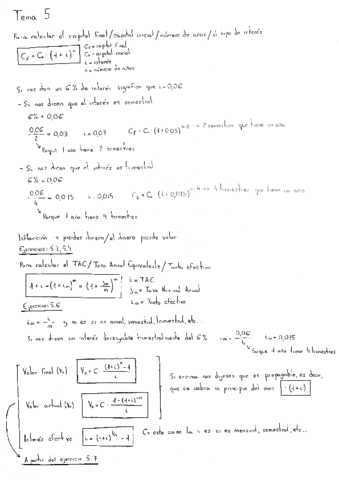 Tema 5
Para calcular el capital final/capital inicial/número de años/el tipo de interés
C_F = C_0 · (1+i)^n
C_F = capital final
C_0 = capital inicial
i = interés
n = número de años
Si nos dan un 6% de interés significa que i = 0,06
- Si nos dicen que el interés es semestral
6% = 0,06
0,06/2 = 0,03 i = 0,03 C_F = C_0 · (1+0,03)^n·2 → 2 semestres que tiene un año
Porque 1 año tiene 2 semestres
- Si nos dicen que el interés es trimestral
6% = 0,06
0,06/4 = 0,015 i = 0,015 C_F = C_0 · (1+0,015)^n·4 → 4 trimestres que tiene un año
Porque 1 año tiene 4 trimestres
Inflación = pierdes dinero/el dinero pierde valor
Ejercicios: 5.2, 5.4
Para calcular el TAE/Tasa Anual Equivalente/Tanto efectivo
i = TAE
Tasa Nominal Anual
i_m = Tanto efectivo
Ejercicio 5.6
y m es si es anual, semestral, trimestral, etc...
Si nos dicen un interés trimestralmente del 6% 0,06/4 i_m = 0,015
Porque 1 año tiene 4 trimestres
Valor final (V_F) V_F = C · ((1+i)^n - 1)/i
Si encima nos dijesen que es prepagable, es decir,
que se cobra a principio del mes · (1+i)
Valor actual (V_0) V_0 = C · (1-(1+i)^-n)/i
Interés efectivo i = (1+i)^1/n - 1 En este caso la n es si es mensual, semestral, etc...
A partir del ejercicio 5.7